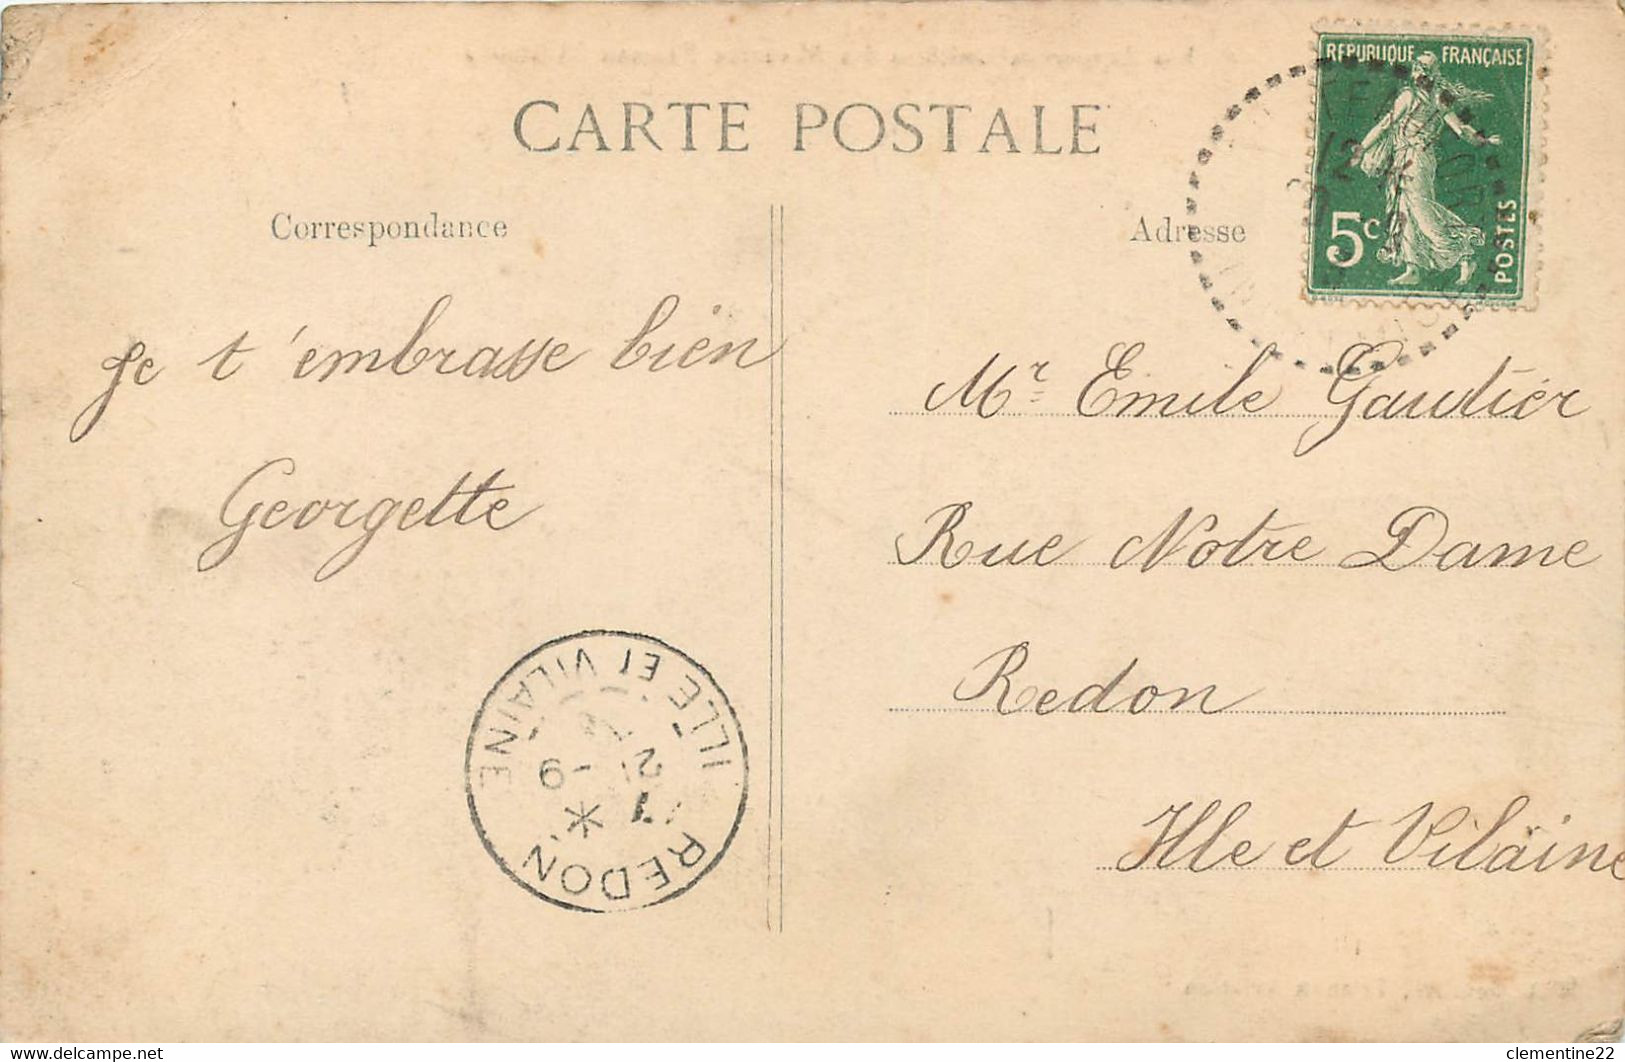 CARTE POSTALE
Correspondance
Je t'embrasse bien
Georgette
REDON
ILLE ET VILAINE
21 - 9
RÉPUBLIQUE FRANÇAISE
5c
POSTES
12
Adresse
Mr Emile Gautier
Rue Notre Dame
Redon
Ille et Vilaine
https://www.delcampe.net
clementine22